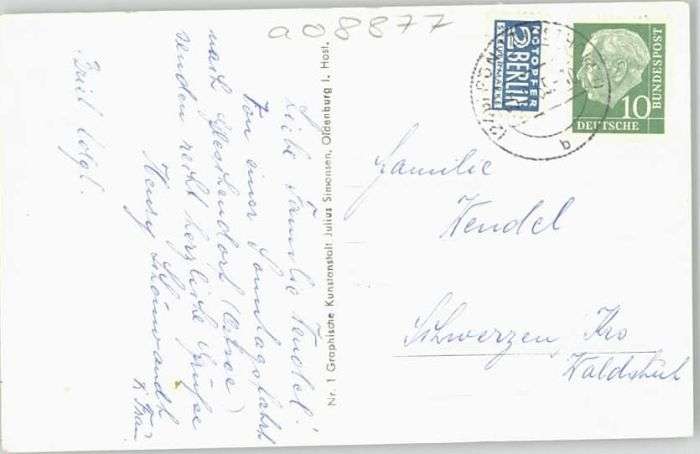 a08877
Liebe Familie Wendel!
Von einer Sonntagsfahrt
nach Gleschendorf (Ostsee)
senden recht herzliche Grüße
Henry
u. Frau
Brief folgt.
Nr. 1 Graphische Kunstanstalt Julius Simonsen, Oldenburg i. Holst.
NOTOPFER
2 BERLIN
STEUERMARKE
10
DEUTSCHE
BUNDESPOST
b
Familie
Wendel
Schwerzen, Krs
Waldshut